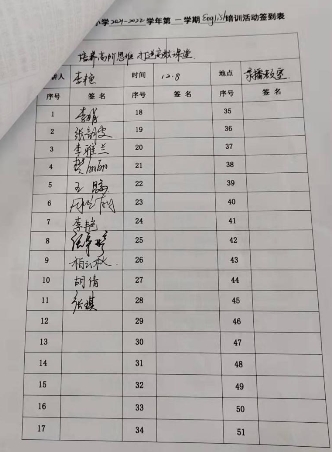 小学2021-2022学年第一学期English培训活动签到表
培养高阶思维 打造高效课堂
人 李艳 时间 12.8 地点 录播教室
序号 签名 序号 签名 序号 签名
1 18 35
2 19 36
3 李雅兰 20 37
4 21 38
5 王 22 39
6 23 40
7 李艳 24 41
8 25 42
9 26 43
10 胡倩 27 44
11 张 28 45
12 29 46
13 30 47
14 31 48
15 32 49
16 33 50
17 34 51